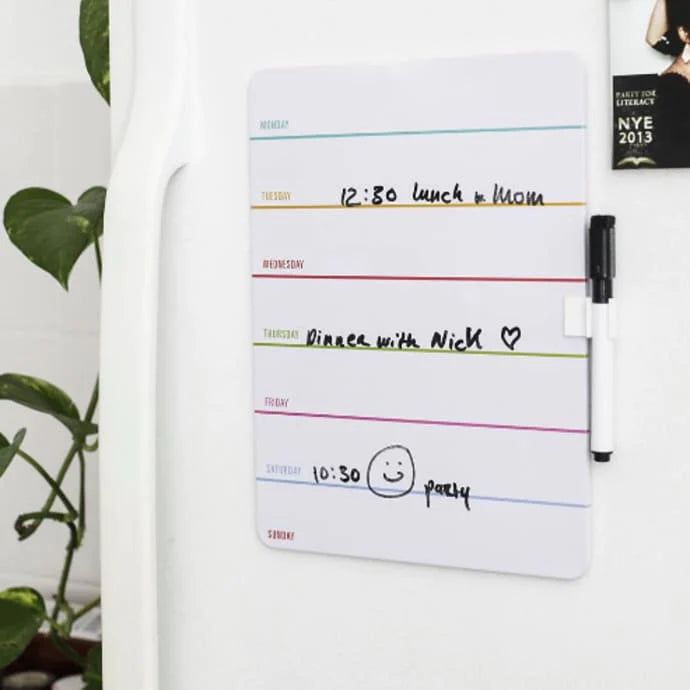 MONDAY
TUESDAY 12:30 lunch w Mom
WEDNESDAY
THURSDAY Dinner with Nick ♡
FRIDAY
SATURDAY 10:30 ☺ party
SUNDAY
PARTY FOR
LITERACY
NYE
2013